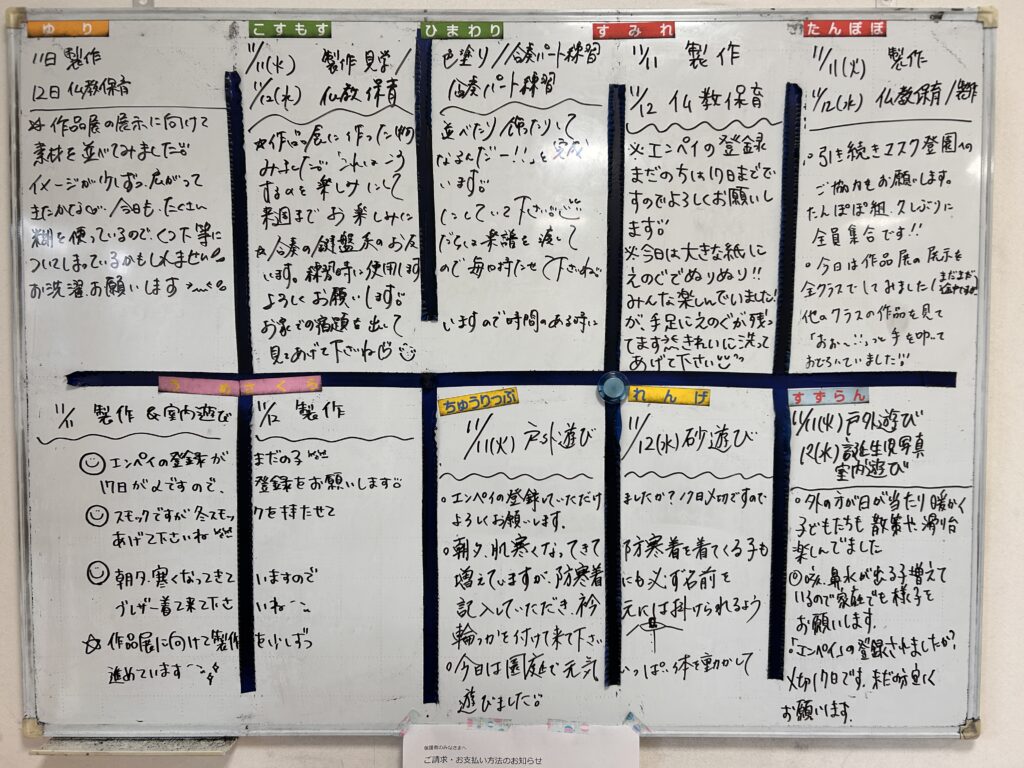 ゆり
11日 製作
12日 仏教保育
☆ 作品展の展示に向けて
素材を並べてみました。
イメージが少しずつ広がって
今日も、たくさん
糊を使っているので、くつ下等に
ついてしまっているかもしれません。
お洗濯お願いします
こすもす
11/11(火) 製作見学/
11/12(水) 仏教保育
☆作品展に作った
みました。
するのを楽しみにして
来週までお楽しみに
☆合奏の鍵盤系のお友
います。練習時に使用します
よろしくお願いします。
お家での宿題を出して
見てあげて下さいね
ひまわり
色塗り/合奏パート練習
合奏パート練習
並べたり/飾たりして
なるんだー!!」を完成
います。
にしていて下さい
だちには楽譜を渡して
ので毎日持たせて下さいね
いますので時間のある時に
すみれ
11/11 製作
11/12 仏教保育
※エンペイの登録
まだのちは17日までで
すのでよろしくお願いし
ます。
※今日は大きな紙に
えのぐでぬりぬり!!
みんな楽しんでいました!
が、手足にえのぐが残っ
てます きれいに洗って
あげて下さい
たんぽぽ
11/11(火) 製作
11/12(水) 仏教保育/製作
○引き続きマスク登園への
ご協力もお願いします。
たんぽぽ組、久しぶりに
全員集合です!!
○今日は作品展の展示を
全クラスでしてみました(まだまだ途中ですが
他のクラスの作品を見て
「おぉ〜!!」っと手を叩いて
おどろいていました!!
うめ さくら
11/11 製作&室内遊び
11/12 製作
エンペイの登録がまだの子
17日が〆ですので、登録をお願いします。
スモックですが冬スモックを持たせて
あげて下さいね
朝夕、寒くなってきていますので
ブレザー着て来て下さいね
☆作品展に向けて製作を少しずつ
進めています
ちゅうりっぷ
れんげ
11/11(火) 戸外遊び
11/12(水) 砂遊び
○エンペイの登録していただけましたか?17日〆切ですので
よろしくお願いします。
○朝夕、肌寒くなってきて防寒着を着てくる子も
増えていますが、防寒着にも必ず名前を
記入していただき、衿元には掛けられるよう
輪っかを付けて来て下さい
○今日は園庭で元気いっぱい体を動かして
遊びました。
すずらん
11/11(火) 戸外遊び
12(水) 誕生児写真
室内遊び
○外の方が日が当たり暖かく
子どもたちも散策や滑り台
楽しんでました
◎咳、鼻水が出る子増えて
いるので家庭でも様子を
お願いします。
「エンペイ」の登録されましたか?
〆切17日です。まだの方早く
お願います。
保護者のみなさまへ
ご請求・お支払い方法のお知らせ